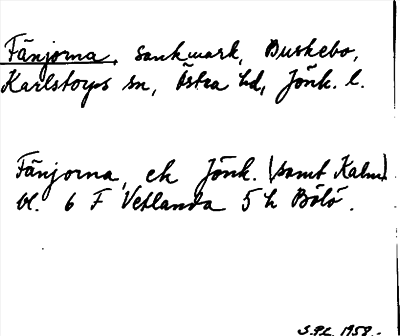 Fänjorna, sankmark, Buskebo,
Karlstorps sn, Östra hd, Jönk. l.
Fänjorna, ek Jönk. (samt Kalm)
bl. 6 F Vetlanda 5 h Bölö.
S.P.L. 1958.-